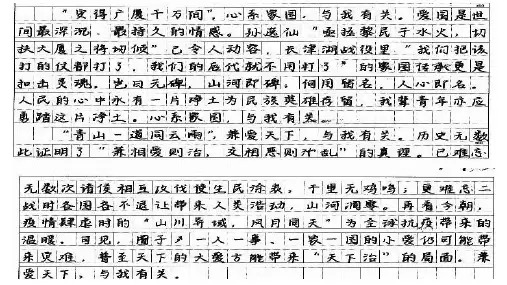 “安得广厦千万间”。心系家国，与我有关。爱国是世
间最深沉、最持久的情感。孙逸仙“亟拯斯民于水火，切
扶大厦之将倾”已令人动容，长津湖战役里“我们把该
打的仗都打了，我们的后代就不用打了”的家国传承更是
扣击灵魂。岂曰无碑，山河即碑。何用留名，人心即名。
人民的心中永有一片净土为民族英雄存留，我辈青年亦应
勇踏这片净土。心系家国，与我有关。
“青山一道同云雨”，兼爱天下，与我有关。历史无数
此证明了“兼相爱则治，交相恶则乱”的真理。已难忘
无数次诸侯相互攻伐使生民涂炭，千里无鸡鸣；更难忘二
战时各国各不退让带来人类浩劫，山河凋零。再看今朝，
疫情肆虐时的“山川异域，风月同天”为全球抗疫带来的
温暖。可见，囿于一人一事、一家一国的小爱仍可能带
来灾难，普至天下的大爱方能带来“天下治”的局面。兼
爱天下，与我有关。